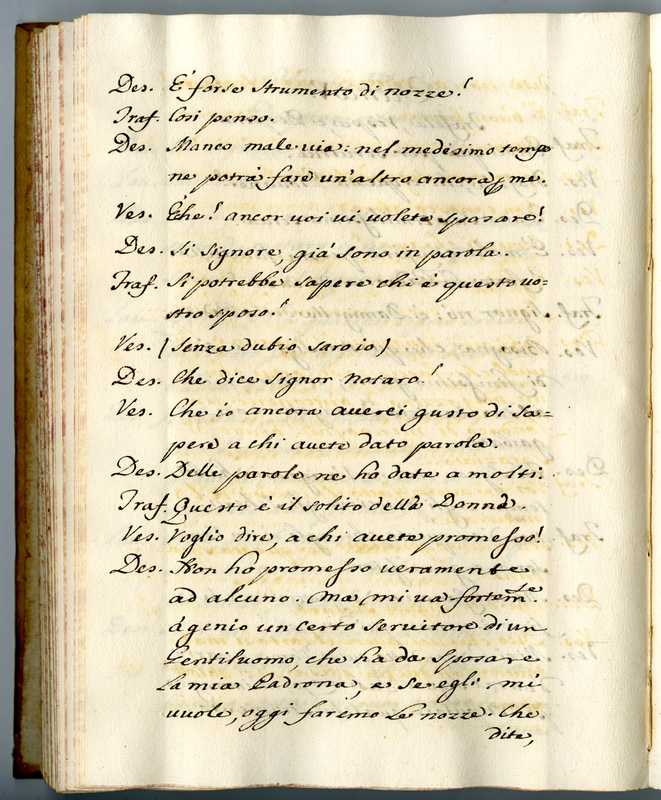 Des. É forse strumento di nozze!
Traf. Cosi penso.
Des. Manco male via: nel medesimo tempo
ne potrà fare un'altro ancora p me.
Ves. Eh̀e! ancor voi vi volete sposare!
Des. Si Signore, giá sono in parola.
Traf. Si potrebbe sapere chi è questo vo=
stro sposo!
Ves. (Senza dubio saro io)
Des. Che dice Signor Notaro!
Ves. Che io ancora averei gusto di sa=
pere a chi avete dato parola.
Des. Delle parole ne ho date a molti.
Traf. Questo è il solito della Donna.
Ves. Voglio dire, a chi avete promesso!
Des. Non ho promesso veramente
ad alcuno. Ma mi va fortemte
á genio un certo servitore di un
Gentiluomo, che ha da sposare
la mia Padrona, e se egli mi
vuole, oggi faremo le nozze. Che
dite,